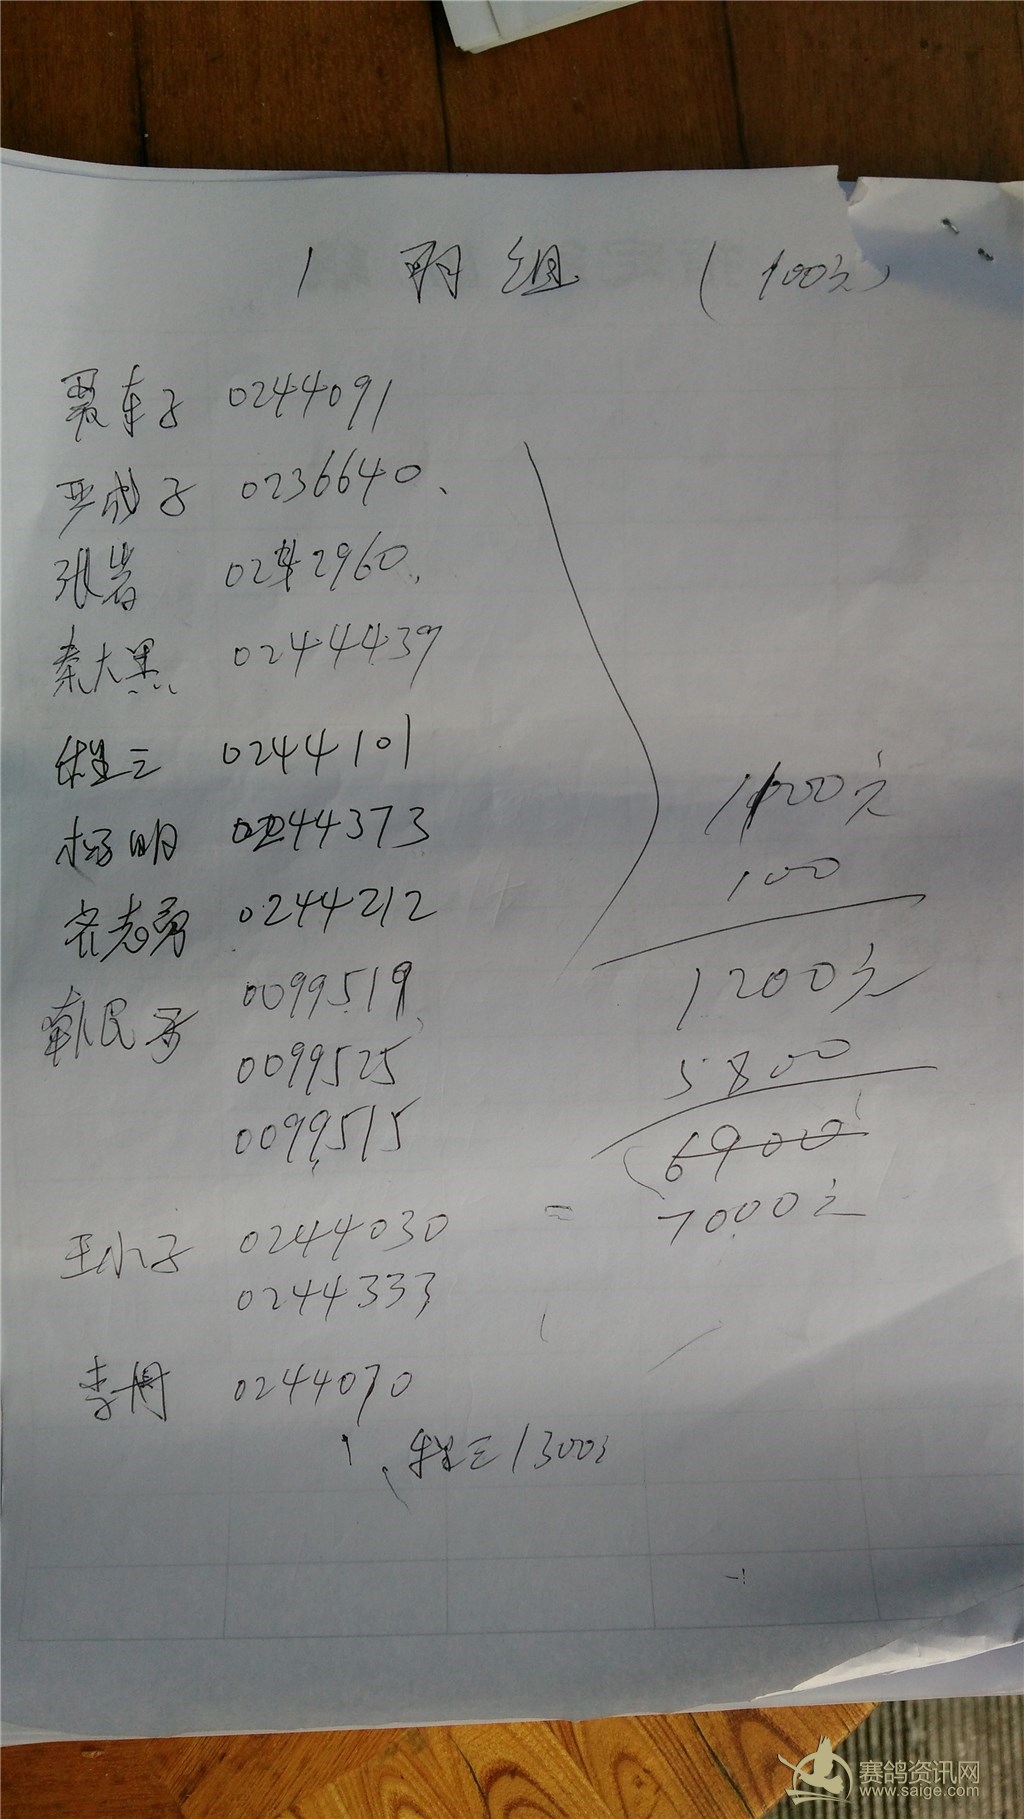 1 羽组 (100元)
聂车子 0244091
子 0236640、
张岩 0242960.
秦大黑 0244439
程三 0244101
杨明 0244373
志勇 0244212
韩民子 0099519
0099525
0099515
王小子 0244030
0244333
李丹 0244070
程三1300元
1100元
100
1200元
5800
6900
= 7000元
赛鸽资讯网
www.saige.com